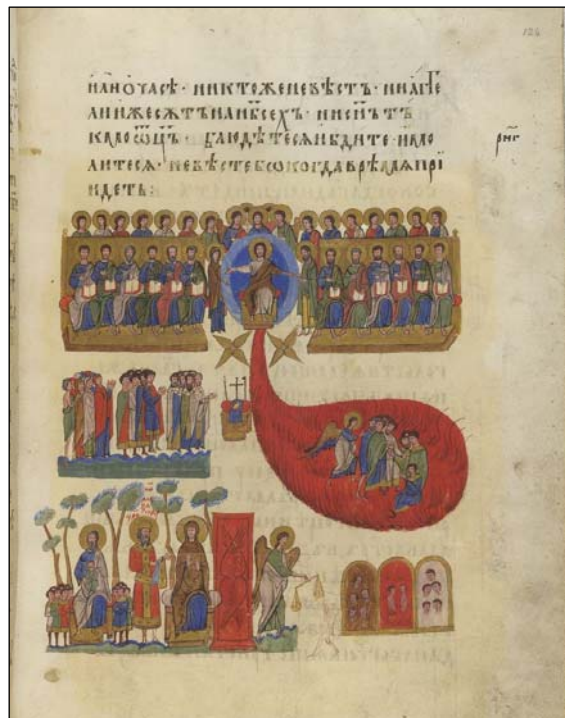 124
или о часѣ · никтоже не вѣстъ · ни агг҃е
ли иже сѫтъ на нб҃сехъ · ни сн҃ъ тъ
кмо ѡц҃ъ · блюдѣтесѧ и бдите · и мо
литесѧ · не вѣсте бѡ когда врѣмѧ прі
идетъ :